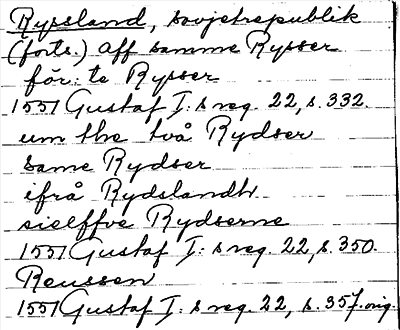 Ryssland, sovjetrepublik
(forts.) Aff samme Rysser
för: te Rysser
1551 Gustaf I: s reg. 22, s. 332.
um the två Rydser
same Rydser
ifrå Rydslandh
sielffve Rydserne
1551 Gustaf I: s reg. 22, s. 350.
Reussen
1551 Gustaf I: s reg. 22, s. 357. orig.